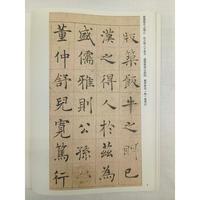 版築飯牛之朋已
漢之得人於茲為
盛儒雅則公孫弘
董仲舒兒寬篤行